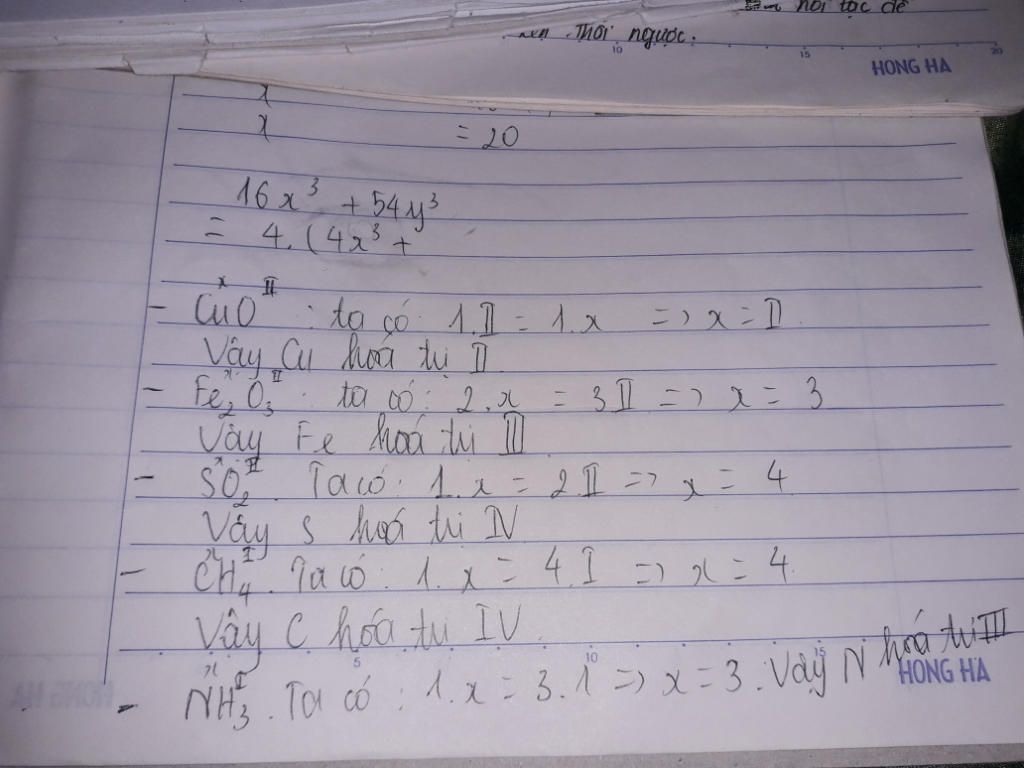 hồi tộc để
Thời ngược.
10 15 20
HONG HA
x
x = 20
16x³ + 54y³
= 4. (4x³ +
x II
- CuO : ta có: 1.II = 1.x => x = II
Vậy Cu hoá trị II
x II
- Fe₂O₃ : ta có: 2.x = 3II => x = 3
Vậy Fe hoá trị III
x II
- SO₂. Ta có: 1.x = 2II => x = 4
Vậy S hoá trị IV
x I
- CH₄. Ta có: 1.x = 4.I => x = 4
Vậy C hoá trị IV
5 10 15
HONG HA
x I
- NH₃. Ta có: 1.x = 3.1 => x = 3. Vậy N hoá trị III